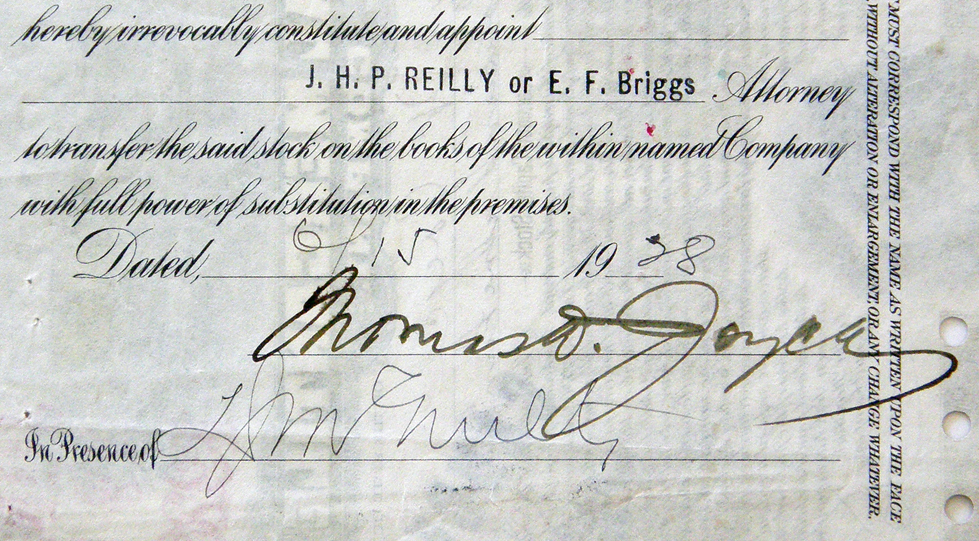 hereby irrevocably constitute and appoint
J. H. P. REILLY or E. F. Briggs Attorney
to transfer the said stock on the books of the within named Company
with full power of substitution in the premises.
Dated, 6/15 1928
Thomas D. Joyce
In Presence of
MUST CORRESPOND WITH THE NAME AS WRITTEN UPON THE FACE
WITHOUT ALTERATION OR ENLARGEMENT, OR ANY CHANGE WHATEVER.